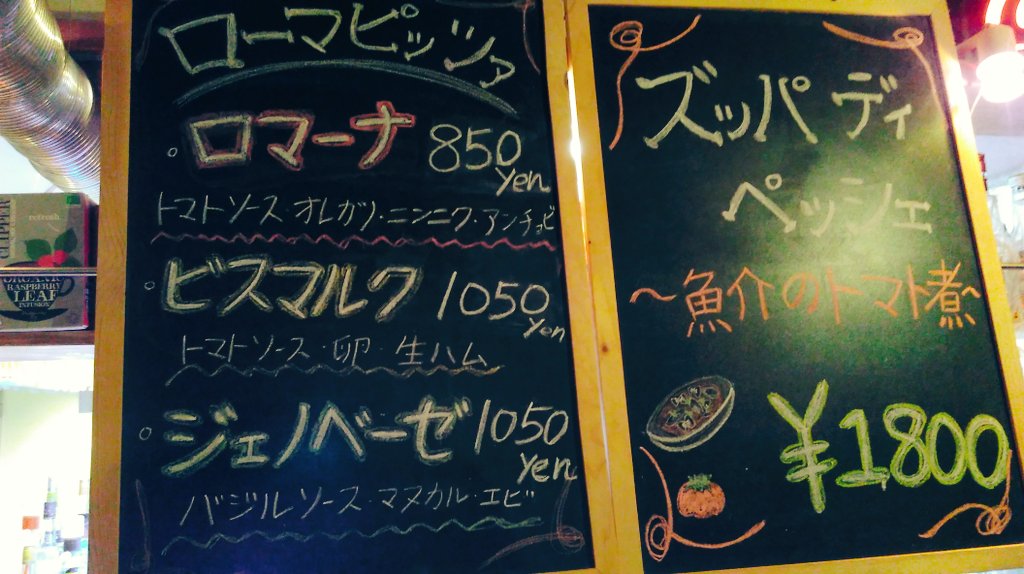 ローマピッツァ
ロマーナ 850 yen
トマトソース・オレガノ・ニンニク・アンチョビ
ビスマルク 1050 yen
トマトソース・卵・生ハム
ジェノベーゼ 1050 yen
バジルソース・マヌカル・エビ
ズッパ ディ
ペッシェ
〜魚介のトマト煮〜
¥1800
CLIPPER
refresh
ORGANIC
RASPBERRY
LEAF
INFUSION